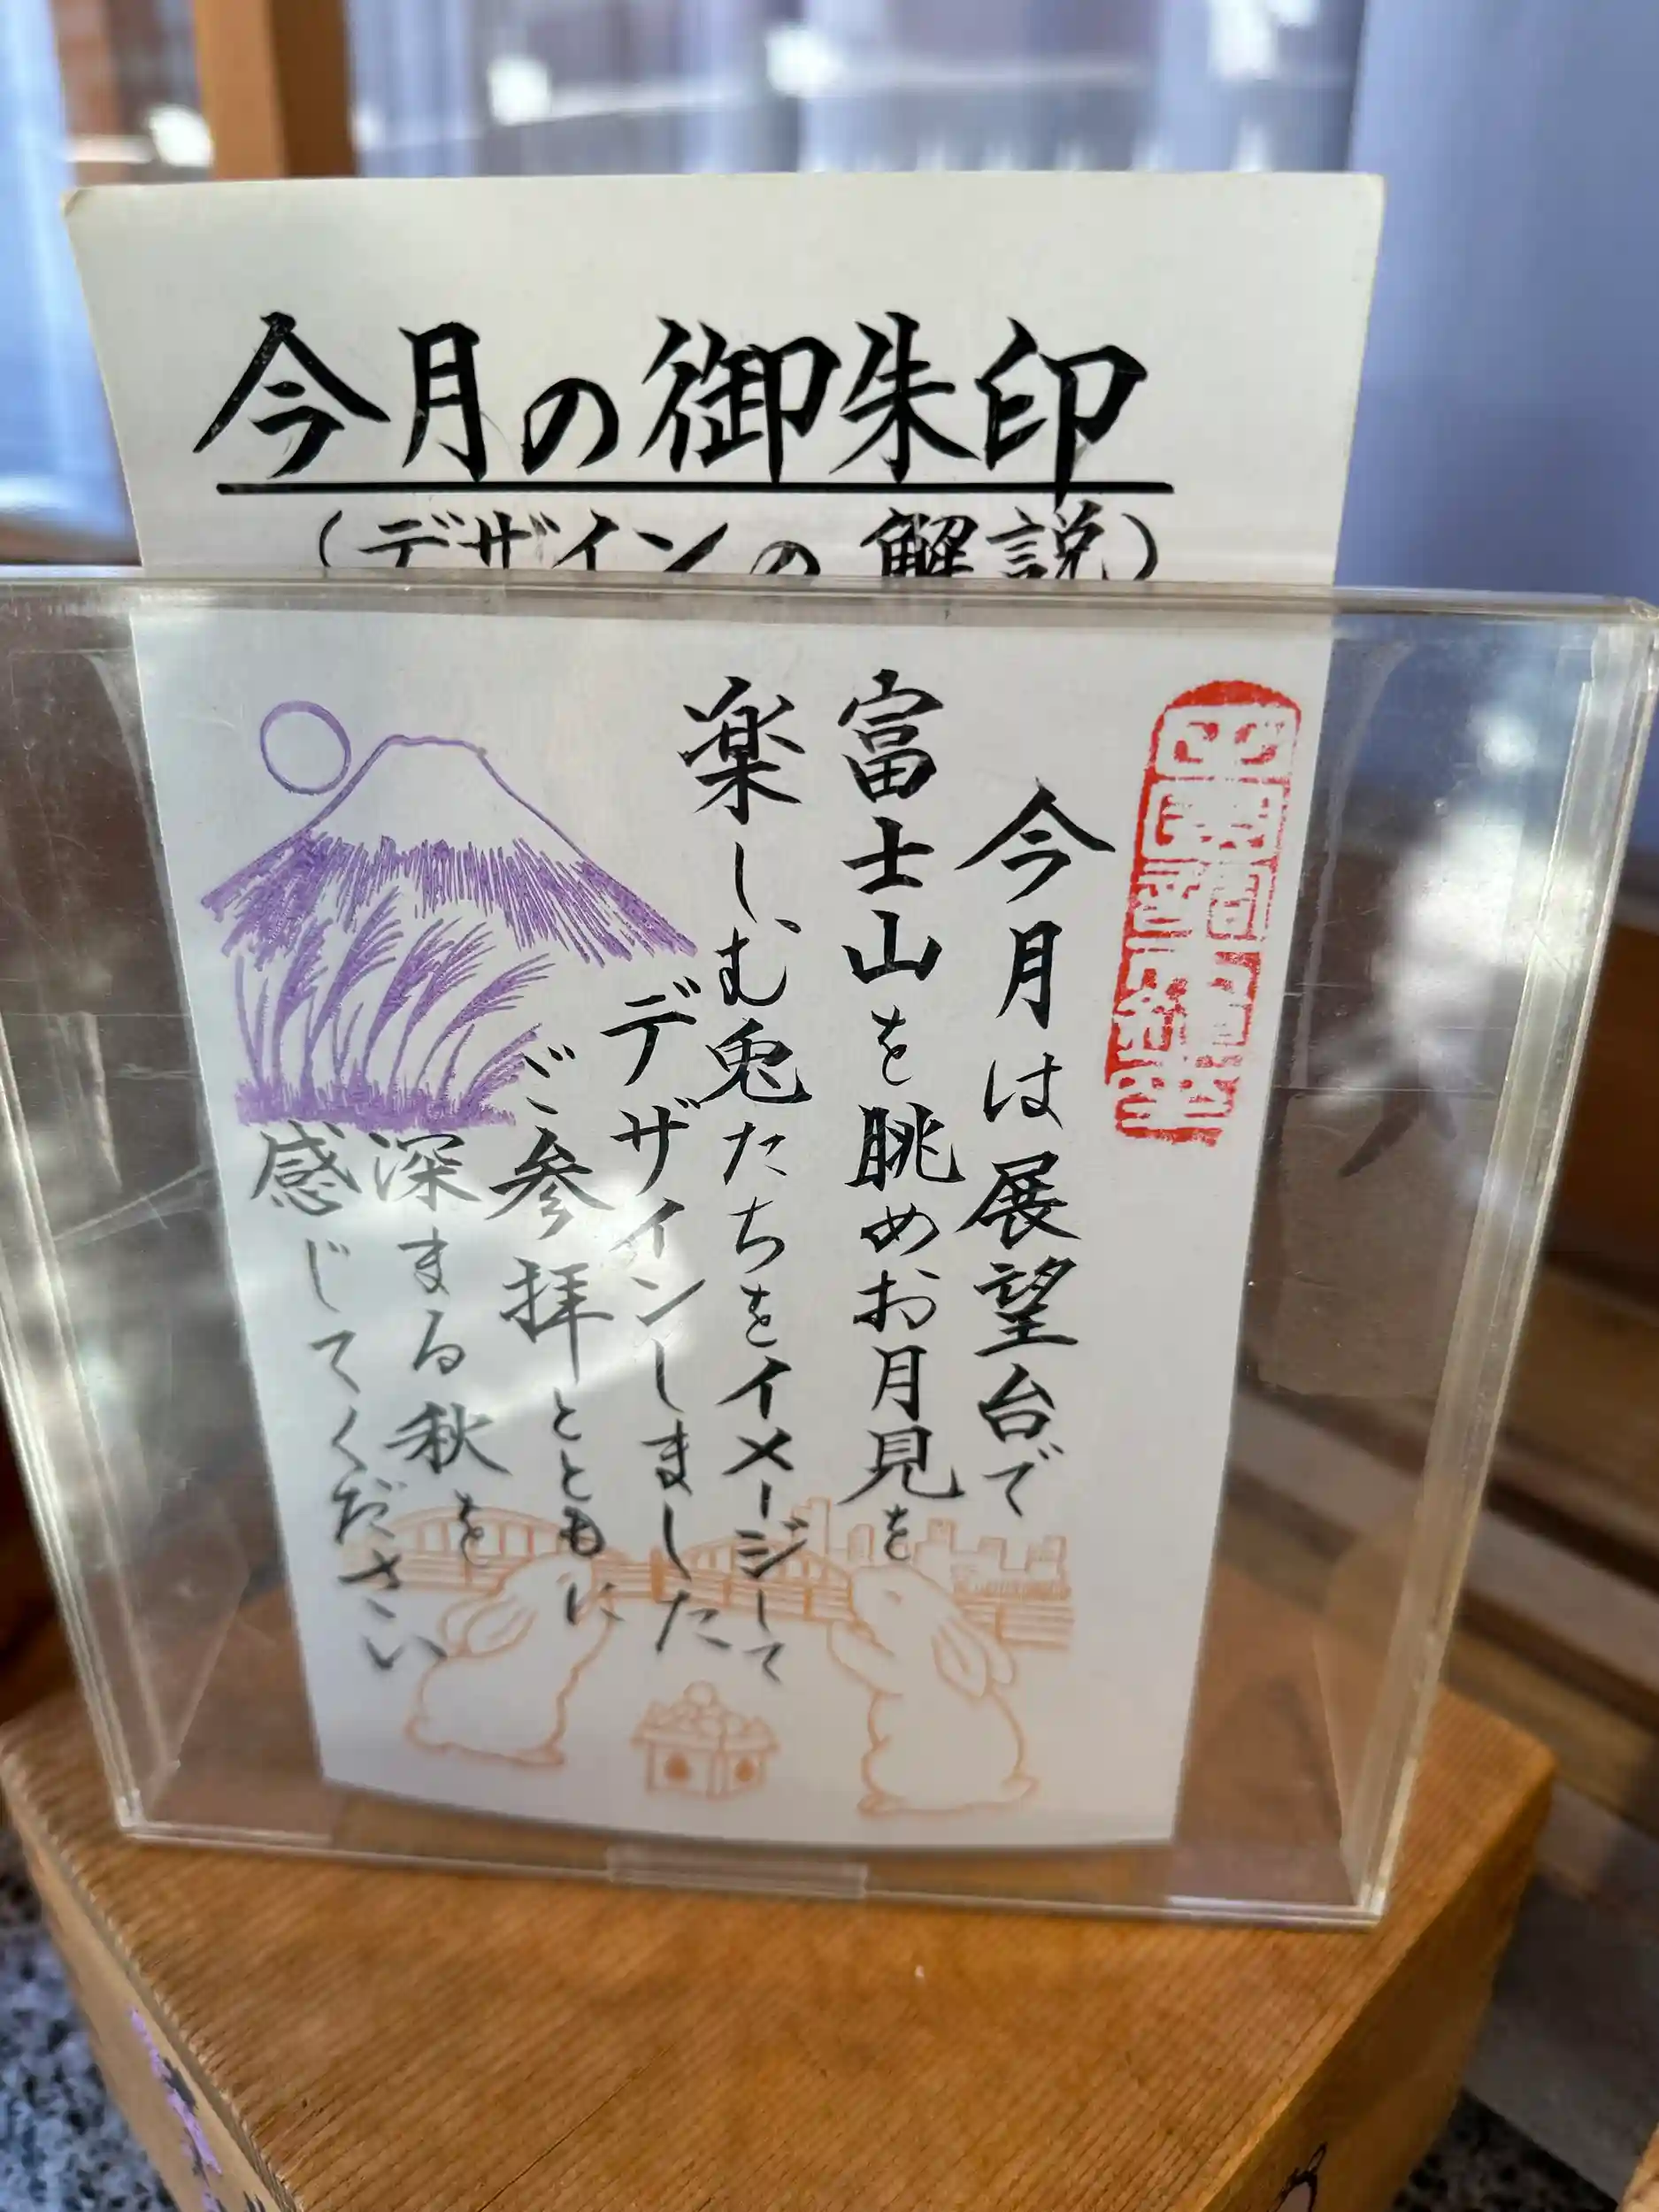 今月の御朱印
(デザインの解説)
今月は展望台で
富士山を眺めお月見を
楽しむ兎たちをイメージして
デザインしました
ご参拝とともに
深まる秋を
感じてください